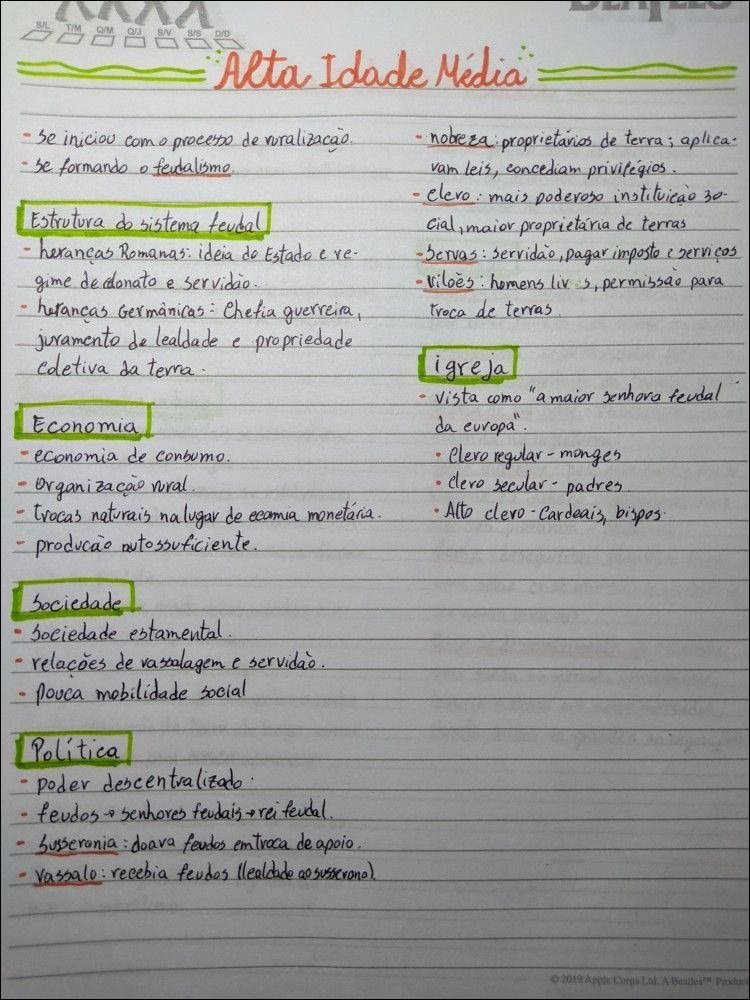 S/L T/M Q/M Q/J S/V S/S D/D
BEATLES
Alta Idade Média
- se iniciou com o processo de ruralização.
- se formando o feudalismo.
Estrutura do sistema feudal
- heranças Romanas: ideia do Estado e re-
gime de colonato e servidão.
- heranças Germânicas: Chefia guerreira,
juramento de lealdade e propriedade
coletiva da terra.
Economia
- economia de consumo.
- organização rural.
- trocas naturais na lugar de ecomia monetária.
- producão autossuficiente.
Sociedade
- Sociedade estamental.
- relações de vassalagem e servidão.
- pouca mobilidade social
Política
- poder descentralizado.
- feudos → senhores feudais → rei feudal.
- Susserania: doava feudos em troca de apoio.
- vassalo: recebia feudos (lealdade ao susserano).
- nobreza: proprietários de terra; aplica-
vam leis, concediam privilégios.
- clero: mais poderoso instituição so-
cial, maior proprietária de terras
- Servas: servidão, pagar imposto e serviços
- vilões: homens livres, permissão para
troca de terras.
igreja
- vista como "a maior senhora feudal
da europa".
• Clero regular - monges
• clero secular - padres
• Alto clero - cardeais, bispos.
© 2019 Apple Corps Ltd. A Beatles™ Produc